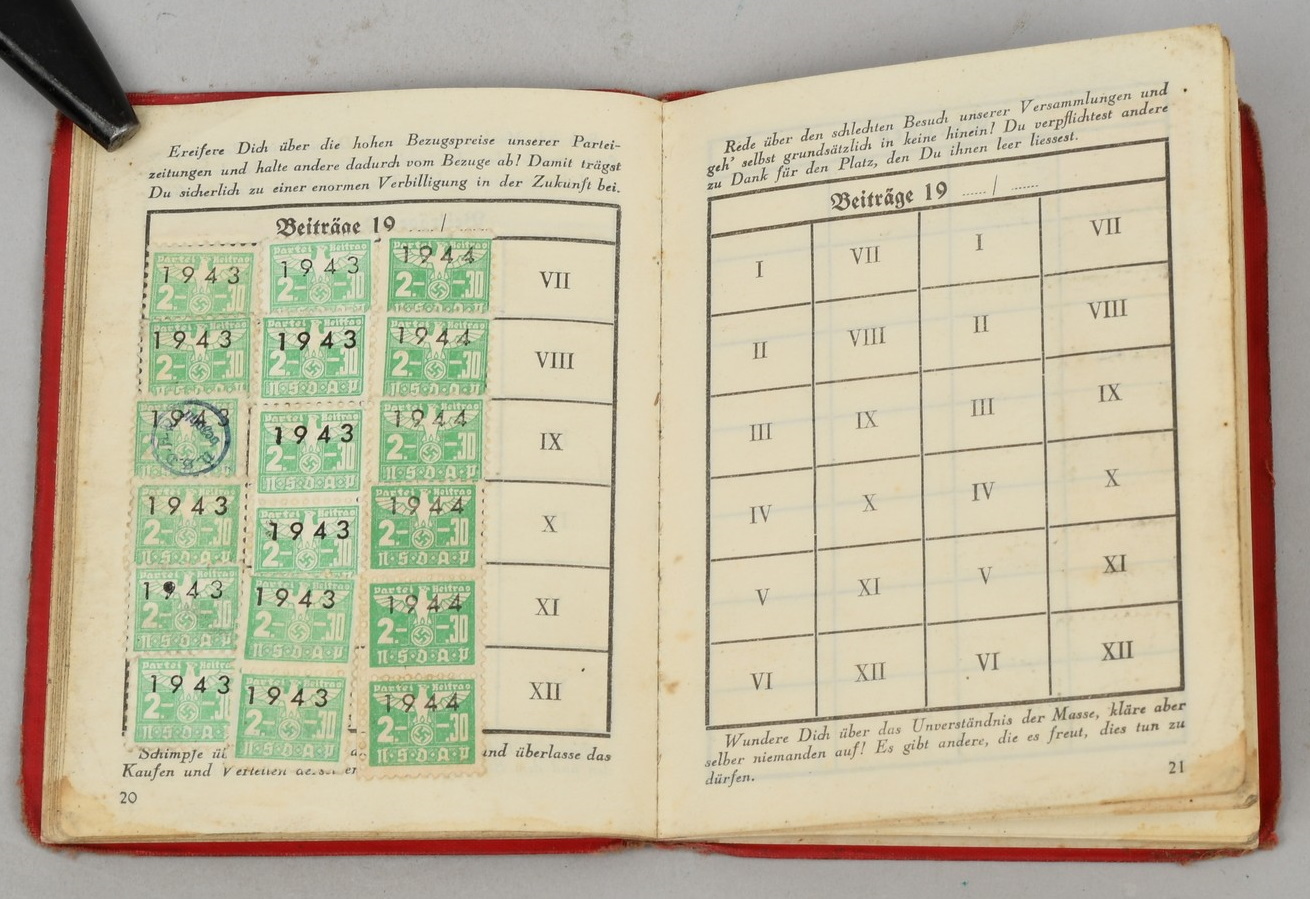 Ereifere Dich über die hohen Bezugspreise unserer Partei-
zeitungen und halte andere dadurch vom Bezuge ab! Damit trägst
Du sicherlich zu einer enormen Verbilligung in der Zukunft bei.
Beiträge 19 ...... / ......
Partei Beitrag Partei Beitrag Partei Beitrag
1943 1943 1944
2.-.30 2.-.30 2.-.30
VII
Partei Beitrag Partei Beitrag Partei Beitrag
1943 1943 1944
2.-.30 2.-.30 2.-.30
N·S·D·A·P
VIII
Partei Beitrag Partei Beitrag
1943 1943 1944
2.-.30 2.-.30 2.-.30
N·S·D·A·P
IX
Partei Beitrag Partei Beitrag
1943 1943 1944
2.-.30 2.-.30 2.-.30
N·S·D·A·P N·S·D·A·P
X
Partei Beitrag Partei Beitrag
1943 1943 1944
2.-.30 2.-.30 2.-.30
N·S·D·A·P N·S·D·A·P N·S·D·A·P
XI
Partei Beitrag Partei Beitrag Partei Beitrag
1943 1943 1944
2.-.30 2.-.30 2.-.30
N·S·D·A·P N·S·D·A·P N·S·D·A·P
XII
Schimpfe und überlasse das
Kaufen und
20
Rede über den schlechten Besuch unserer Versammlungen und
geh' selbst grundsätzlich in keine hinein! Du verpflichtest andere
zu Dank für den Platz, den Du ihnen leer liessest.
Beiträge 19 ...... / ......
I VII I VII
II VIII II VIII
III IX III IX
IV X IV X
V XI V XI
VI XII VI XII
Wundere Dich über das Unverständnis der Masse, kläre aber
selber niemanden auf! Es gibt andere, die es freut, dies tun zu
dürfen.
21